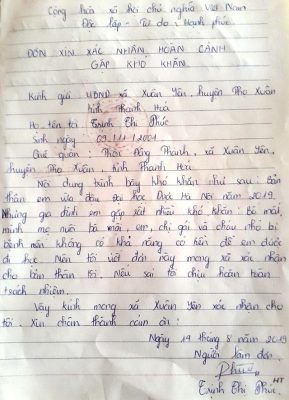 Cộng hòa xã hội chủ nghĩa Việt Nam
Độc lập - Tự do - Hạnh phúc.
ĐƠN XIN XÁC NHẬN HOÀN CẢNH
GẶP KHÓ KHĂN
Kính gửi: UBND xã Xuân Yên, huyện Thọ Xuân
tỉnh Thanh Hoá
Họ tên tôi: Trịnh Thị Phúc
Sinh ngày: 03 / 11 / 2001
Quê quán: Thôn Đồng Thanh, xã Xuân Yên,
huyện Thọ Xuân, tỉnh Thanh Hoá
Nội dung trình bày khó khăn như sau: Bản
thân em vừa đậu Đại học Dược Hà Nội năm 2019.
Nhưng gia đình em gặp rất nhiều khó khăn: Bố mất,
mình mẹ nuôi bà nội, em, chị gái và cháu nhỏ bị
bệnh nên không có khả năng có tiền để em được
đi học. Nên tôi viết đơn này mong xã xác nhận
cho bản thân tôi. Nếu sai tôi chịu hoàn toàn
trách nhiệm.
Vậy kính mong xã Xuân Yên xác nhận cho
tôi. Xin chân thành cảm ơn!
Ngày 14 tháng 8 năm 2019
Người làm đơn
Phúc
Trịnh Thị Phúc